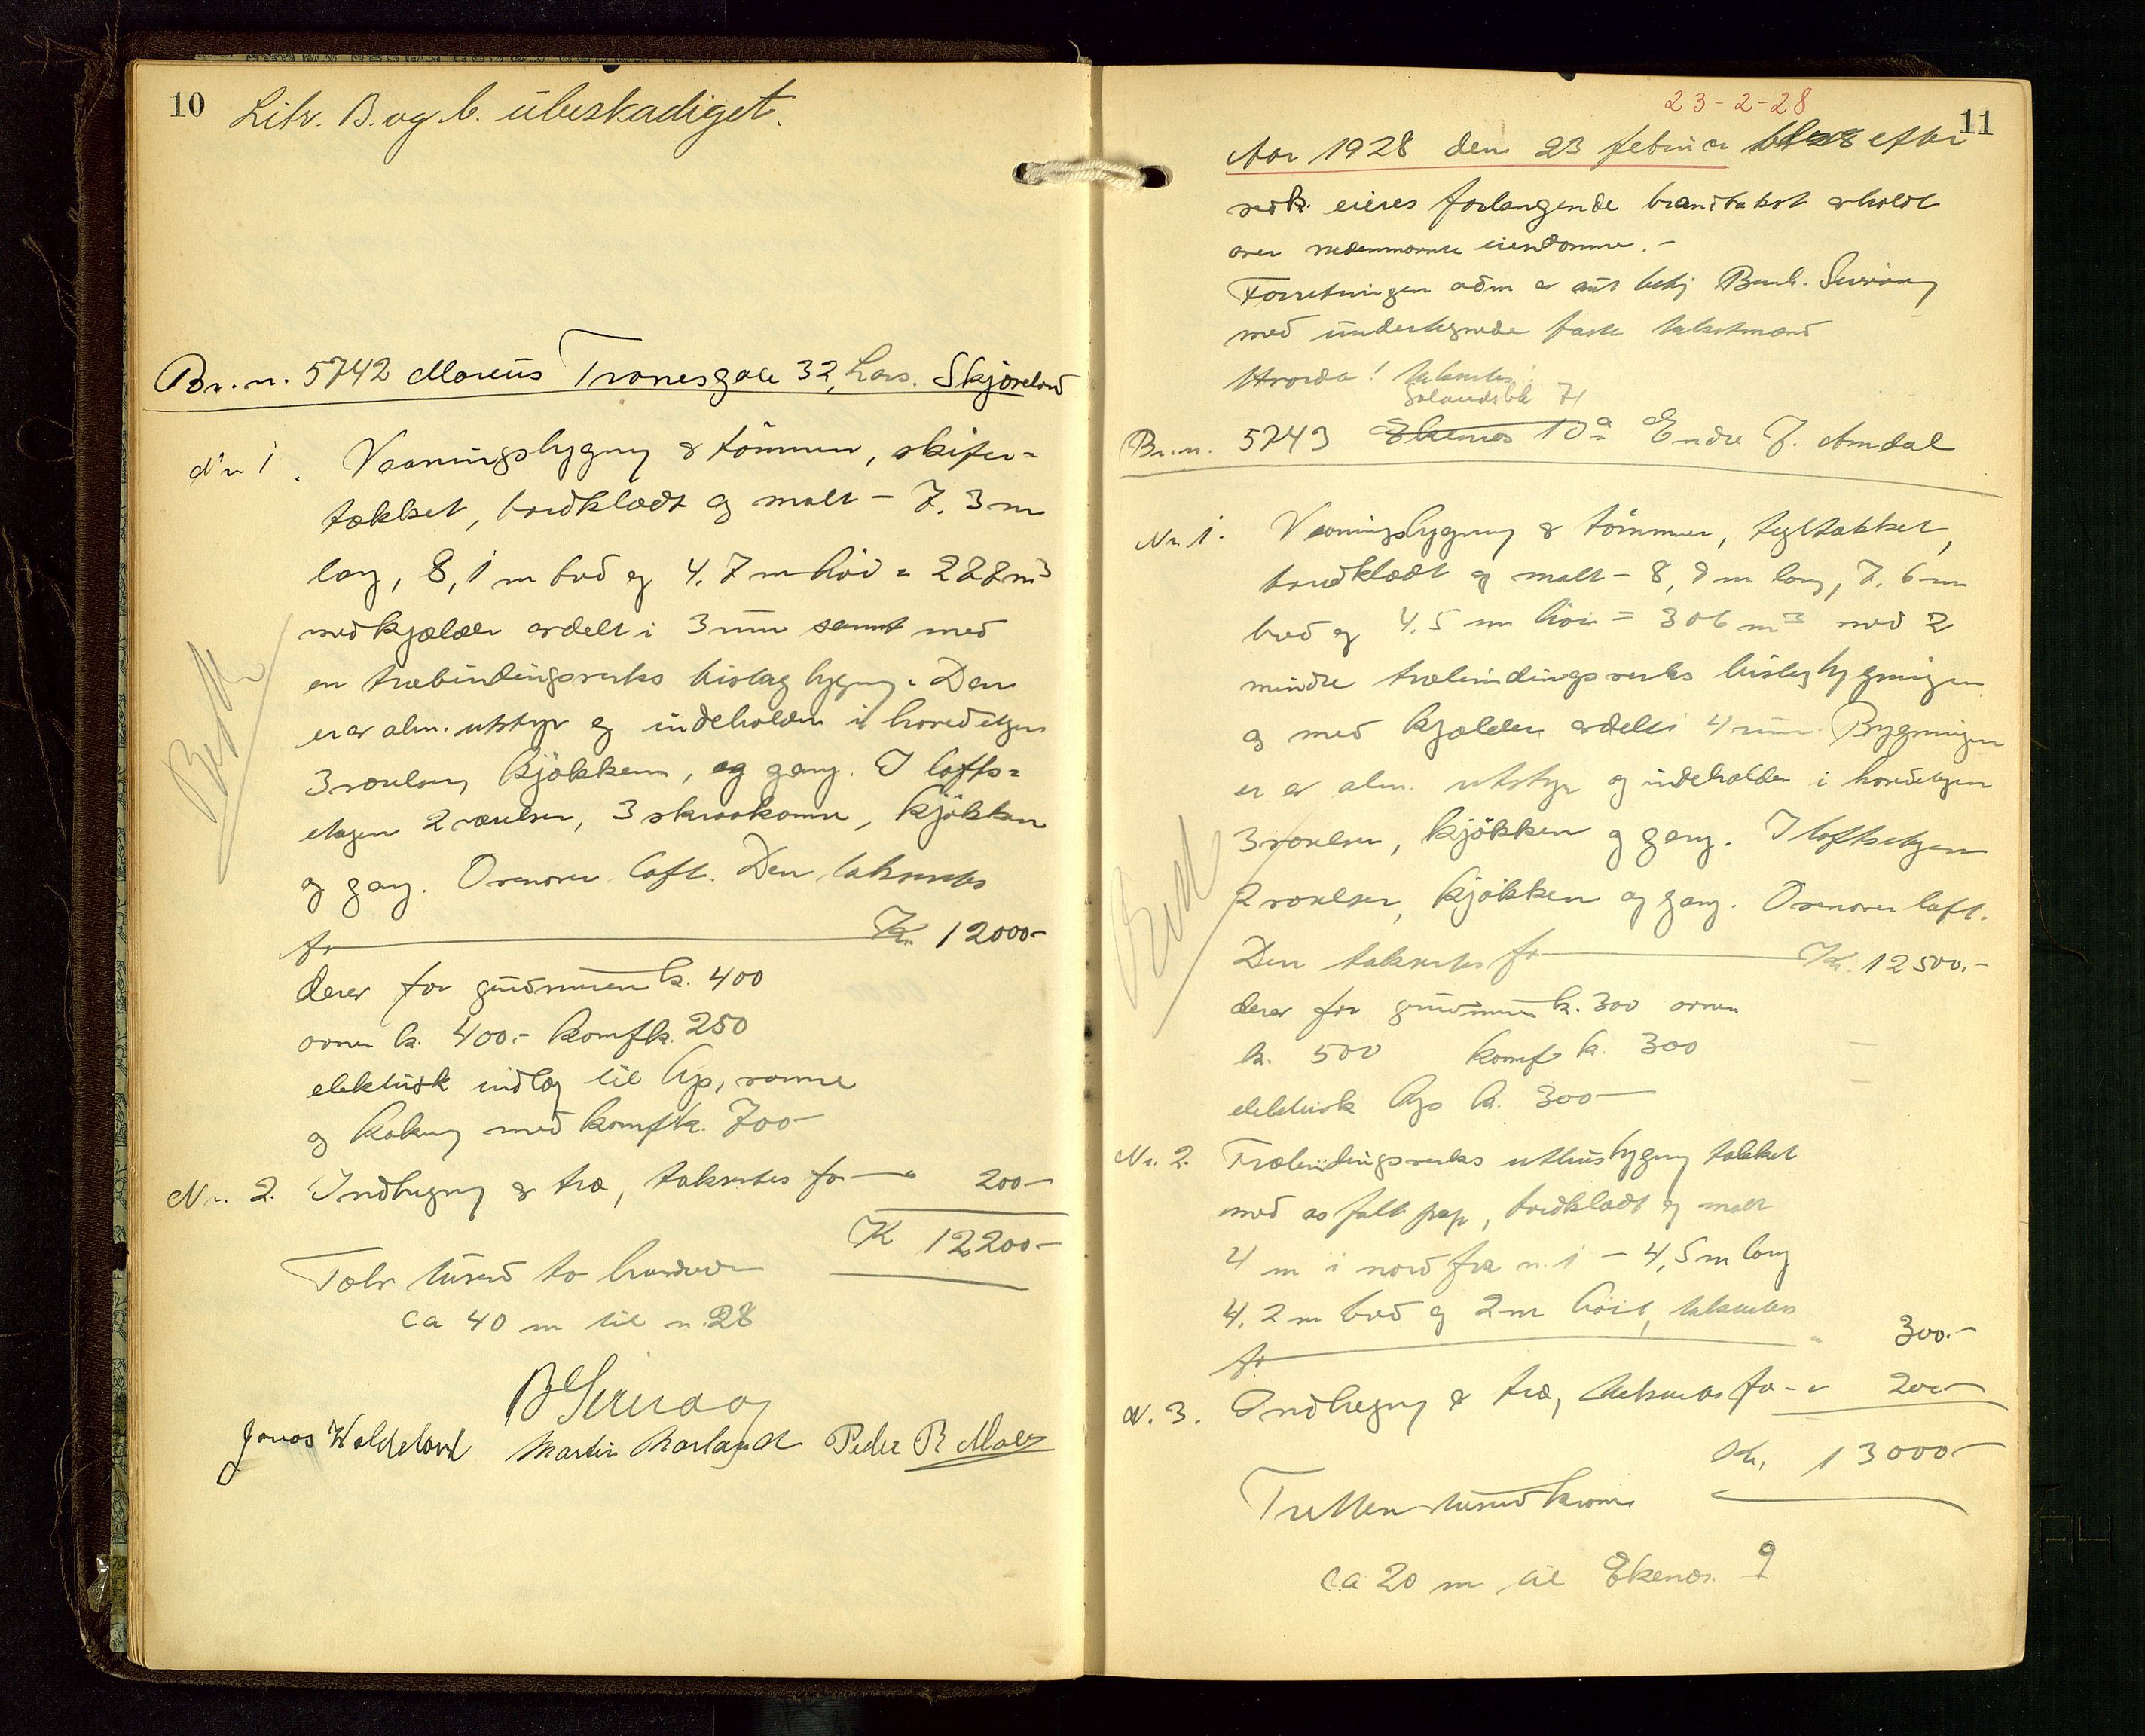 10
Litr. B. og C. ubeskadiget.
Br. n. 5742 Marius Tranesgate 32, Lars. Skjøreland
Nr 1. Vaaningsbygning af tømmer, skifer-
tækket, bordklædt og malt - 7.3 m
lang, 8,1 m bred og 4.7 m høi = 288 m³
med kjælder avdelt i 3 rum samt med
en træbindingsverks bislag bygning. Den
er av alm. utstyr og indeholder i hovedetagen
3 værelser, kjøkken, og gang. I lofts-
etagen 2 værelser, 3 skraakamre, kjøkken
og gang. Ovenover loft. Den takseres
for Kr. 12000-
derav for grundmuren k. 400
ovner k. 400.- komf k. 250
elektrisk indlæg til lys, varme
og kokning med komf k. 700-
Nr. 2. Indhegning af træ, takseres for " 200-
K 12200-
Tolv tusend to hundrede
Ca 40 m til n. 28
Jonas Haldeland Martin Aarland Peder R. Møller
Best
11
23-2-28
Aar 1928 den 23 februar blev efter
vedk. eieres forlangende brandtakst avholdt
over nedennævnte eiendomme. -
Forretningen adm av
med undertegnede faste takstmænd
Hvorda! takseres:
Solandsbk 71
Br. n. 5743 Ekenes 10a Endre J. Amdal
Nr. 1. Vaaningsbygning af tømmer, tegltækket,
bordklædt og malt - 8,9 m lang, 7.6 m
bred og 4.5 m høi = 306 m³ med 2
mindre træbindingsverks bislagbygninger
og med kjælder avdelt i 4 rum. Bygningen
er av alm. utstyr og indeholder i hovedetagen
3 værelser, kjøkken og gang. I loftsetagen
2 værelser, kjøkken og gang. Ovenover loft.
Den takseres for Kr. 12500.-
derav for grundmuren k. 300 ovner
k. 500 komf k. 300
elektrisk lys k. 300-
Nr. 2. Træbindingsverks uthusbygning tækket
med asfalt pap, bordklædt og malt
4 m i nord fra n. 1 - 4,5 m lang
4.2 m bred og 2 m høit, takseres
for " 300.-
N. 3. Indhegning af træ, takseres for - " 200-
Kr. 13000-
Tretten tusend kroner
Ca 20 m til Ekenes. 9